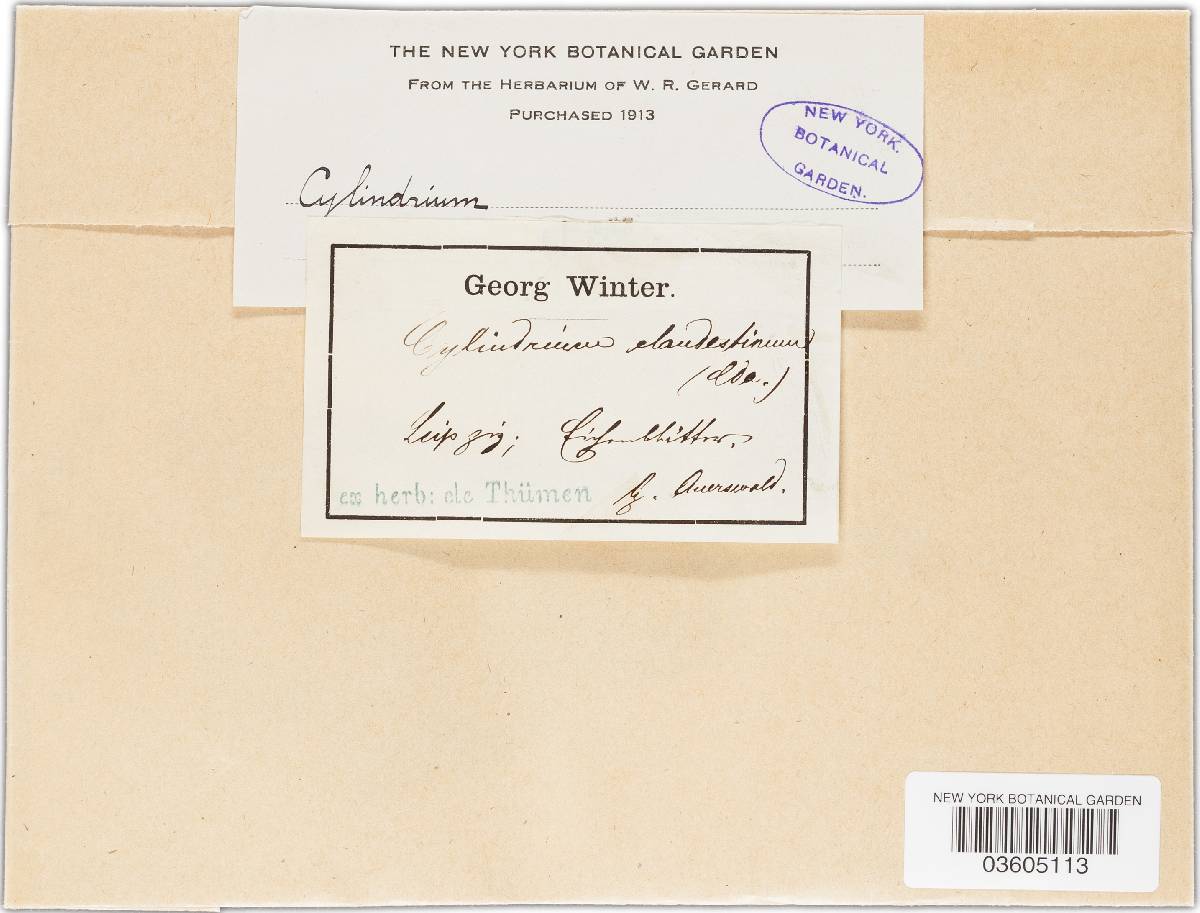 THE NEW YORK BOTANICAL GARDEN
FROM THE HERBARIUM OF W. R. GERARD
PURCHASED 1913
NEW YORK.
BOTANICAL
GARDEN.
Cylindrium
Georg Winter.
Cylindrium clandestinum
Leipzig; Eichenblätter.
ex herb: de Thümen
Auerswald.
NEW YORK BOTANICAL GARDEN
03605113